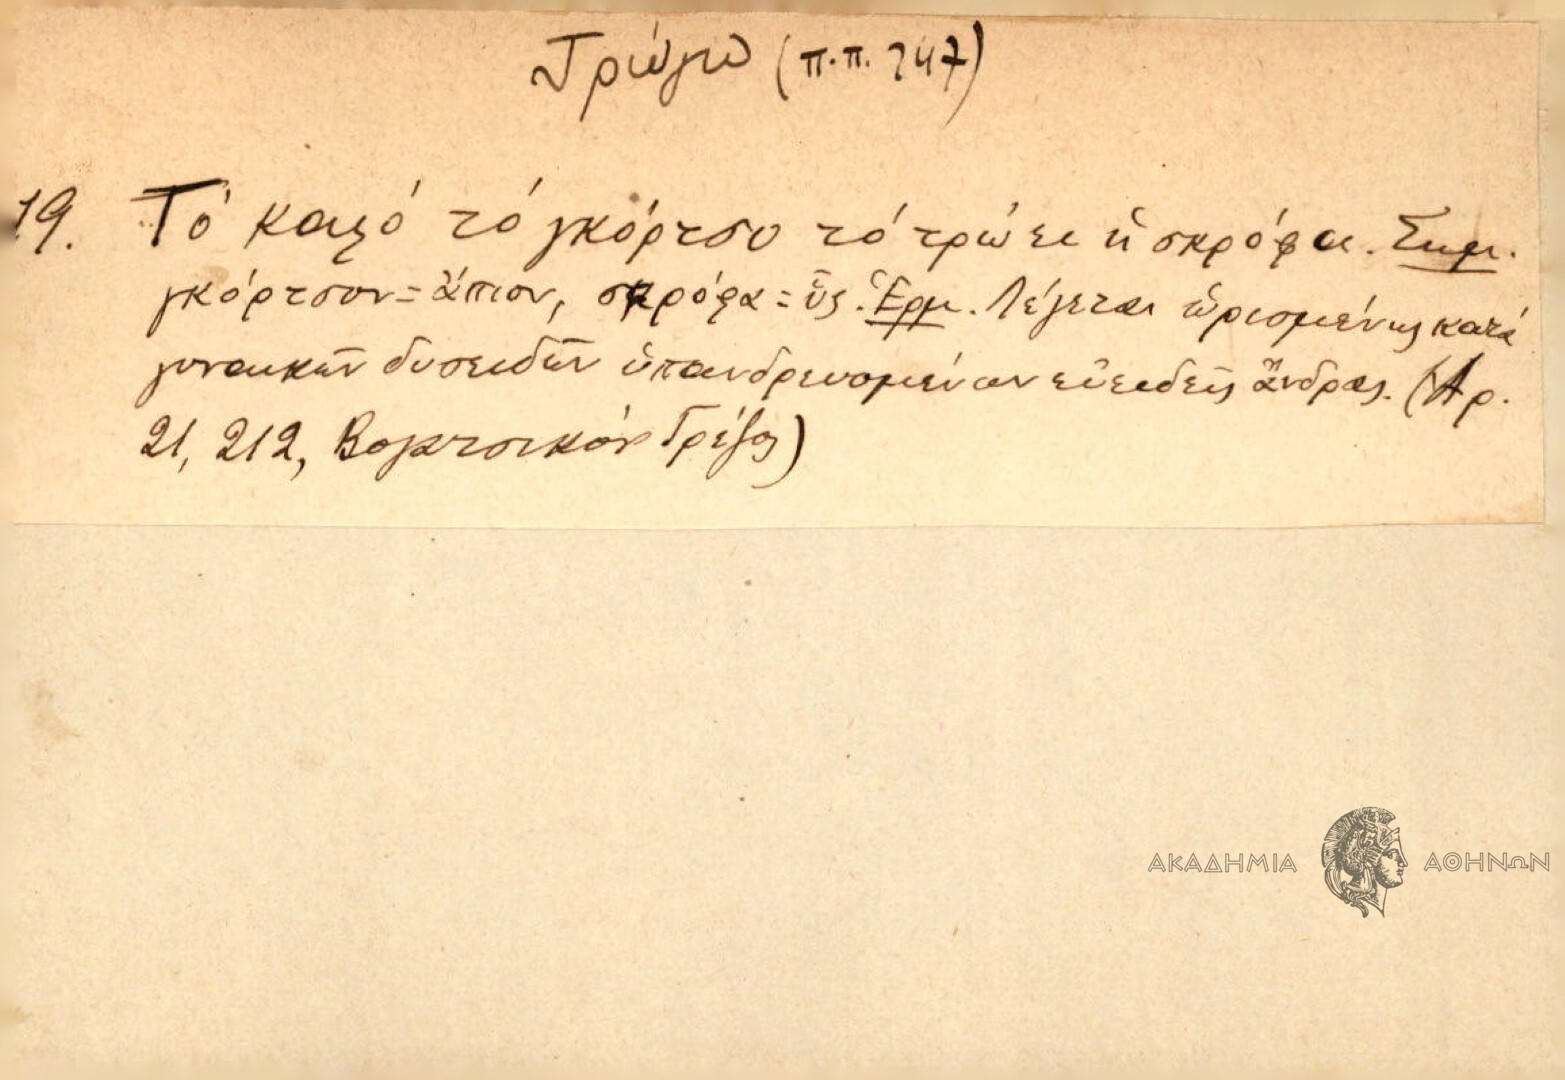 Τρώγω (π.π. 747)
19. Τό καλό τό γκόρτσο τό τρώει ἡ σκρόφα. Σημ.
γκόρτσον=ἄπιον, σκρόφα=ὗς. Ἑρμ. Λέγεται ὡρισμένως κατά
γυναικῶν δυσειδῶν ὑπανδρευομένων εὐειδεῖς ἄνδρας. (Ἀρ.
21, 212, Βογατσικόν Γρέζος)
ΑΚΑΔΗΜΙΑ ΑΘΗΝΩΝ